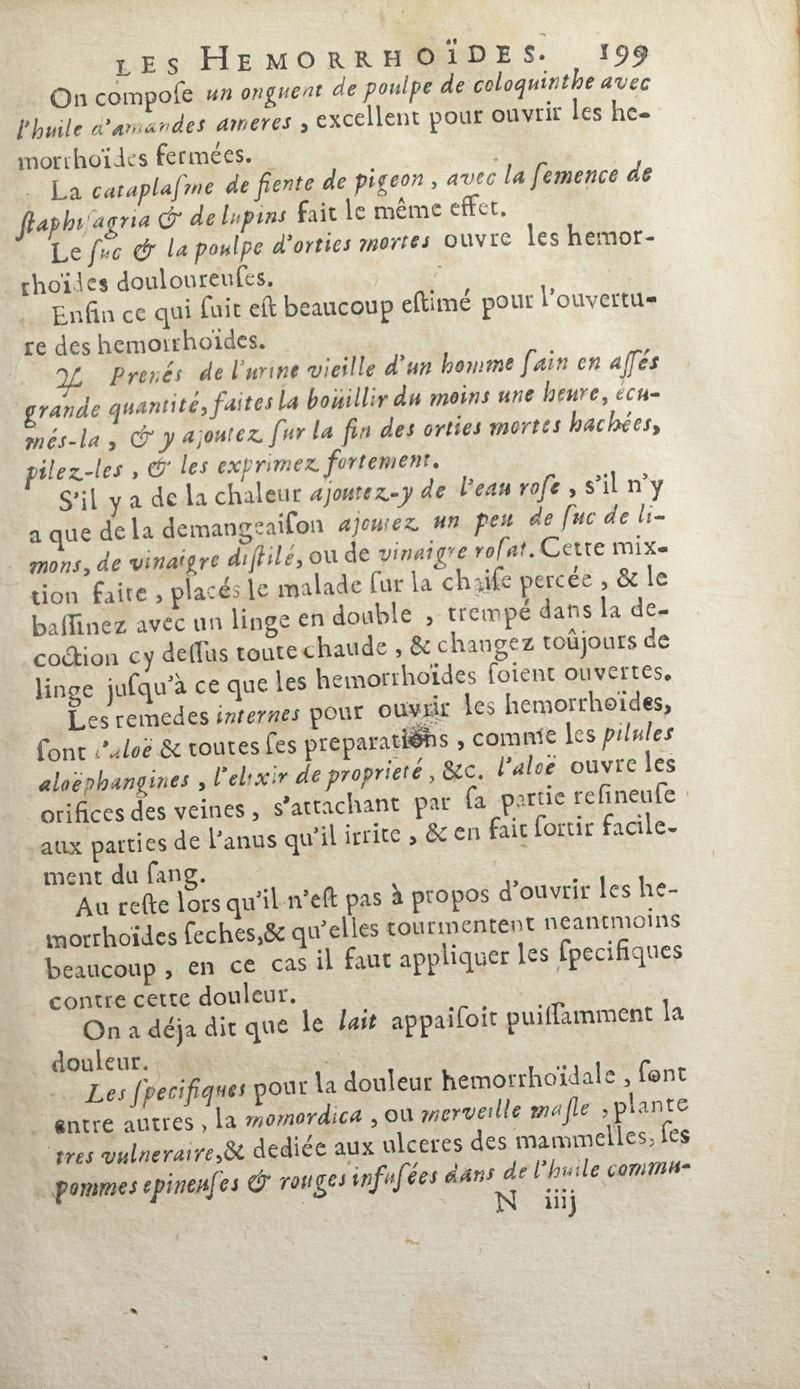 LES HEMORRHOÏDES. 199
On compoſe un onguent de poulpe de coloquinthe avec
l'huile d'amandes ameres, excellent pour ouvrir les he-
morrhoïdes fermées.
La cataplaſme de fiente de pigeon, avec la ſemence de
ſtaphiſagria & de lupins fait le même effet.
Le ſuc & la poulpe d'orties mortes ouvre les hemor-
rhoïdes douloureuſes.
Enfin ce qui ſuit eſt beaucoup eſtimé pour l'ouvertu-
re des hemorrhoïdes.
♃ Prenés de l'urine vieille d'un homme ſain en aſſés
grande quantité, faites la boüillir du moins une heure, écu-
més-la, & y ajoutez ſur la fin des orties mortes hachées,
pilez-les, & les exprimez fortement.
S'il y a de la chaleur ajoutez-y de l'eau roſe, s'il n'y
a que de la demangeaiſon ajoutez un peu de ſuc de li-
mons, de vinaigre diſtilé, ou de vinaigre roſat. Cette mix-
tion faite, placés le malade ſur la chaiſe percée, & le
baſſinez avec un linge en double, trempé dans la de-
coction cy deſſus toute chaude, & changez toûjours de
linge juſqu'à ce que les hemorrhoïdes ſoient ouvertes.
Les remedes internes pour ouvrir les hemorrhoïdes,
ſont l'aloë & toutes ſes preparations, comme les pilules
aloëphangines, l'elixir de proprieté, &c. l'aloë ouvre les
orifices des veines, s'attachant par ſa partie reſineuſe
aux parties de l'anus qu'il irrite, & en fait ſortir facile-
ment du ſang.
Au reſte lors qu'il n'eſt pas à propos d'ouvrir les he-
morrhoïdes ſeches, & qu'elles tourmentent neantmoins
beaucoup, en ce cas il faut appliquer les ſpecifiques
contre cette douleur.
On a déja dit que le lait appaiſoit puiſſamment la
douleur.
Les ſpecifiques pour la douleur hemorrhoïdale, ſont
entre autres, la momordica, ou merveille maſle, plante
tres vulneraire, & dediée aux ulceres des mammelles, ſes
pommes epineuſes & rouges infuſées dans de l'huile commu-
N iiij